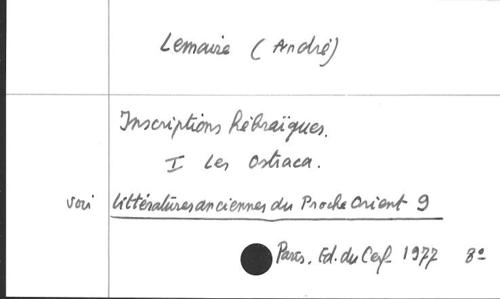 Lemaire (André)
Inscriptions hébraïques.
I Les Ostraca.
voir littératures anciennes du Proche Orient 9
Paris. Ed. du Cerf 1977 8º